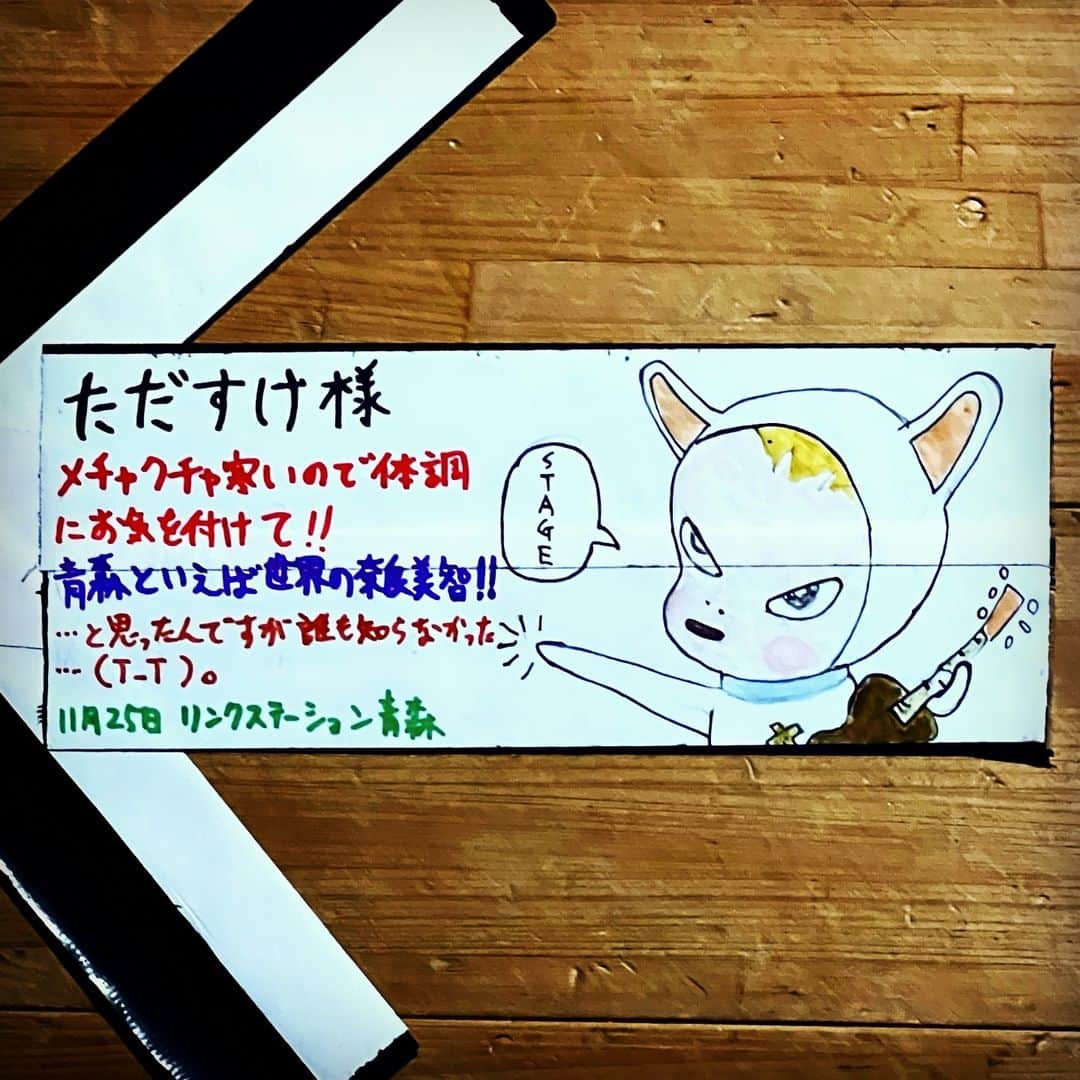 ただすけ様
メチャクチャ寒いので体調
にお気を付けて!!
青森といえば世界の奈良美智!!
…と思ったんですが誰も知らなかった
…(T_T)。
11月25日 リンクステーション青森
STAGE